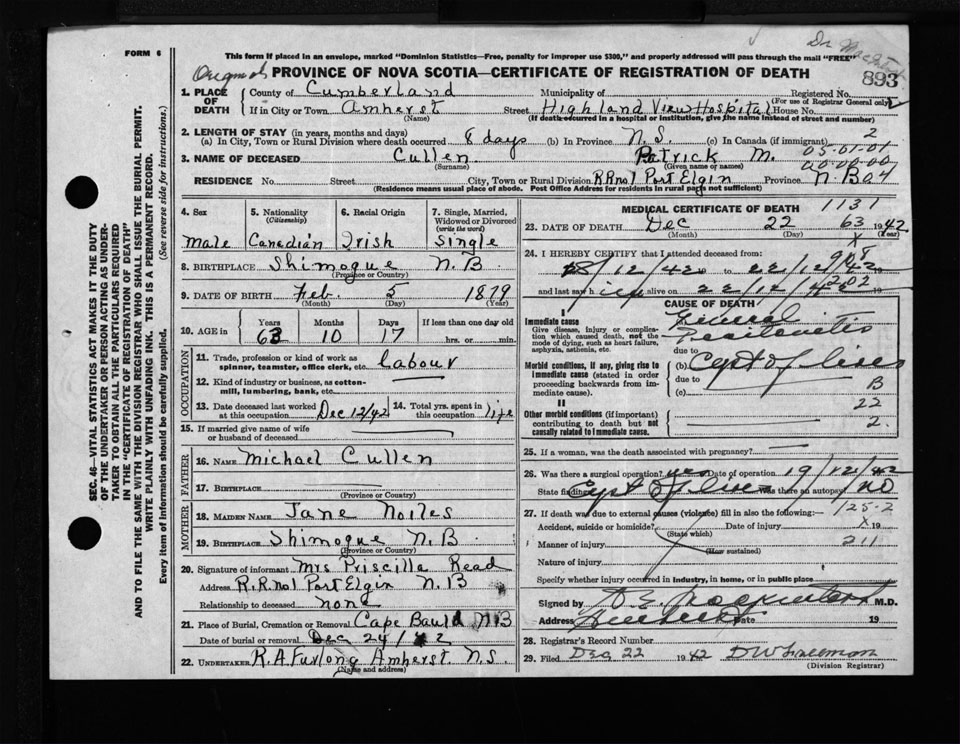 FORM 6
This form if placed in an envelope, marked "Dominion Statistics—Free, penalty for improper use $300," and properly addressed will pass through the mail "FREE"
Dr
893
PROVINCE OF NOVA SCOTIA—CERTIFICATE OF REGISTRATION OF DEATH
1. PLACE OF DEATH County of Cumberland Municipality of Registered No.
(For use of Registrar General only)
If in City or Town Amherst Street Highland View Hospital House No.
(Name) (If death occurred in a hospital or institution, give the name instead of street and number)
2. LENGTH OF STAY (in years, months and days)
(a) In City, Town or Rural Division where death occurred 8 days (b) In Province N.S. (c) In Canada (if immigrant) 2
05-01-01
3. NAME OF DECEASED Cullen Patrick M. 00-00-00
(Surname) (Given name or names)
RESIDENCE No. Street City, Town or Rural Division R R no 1 Port Elgin Province N.B 04
(Residence means usual place of abode. Post Office Address for residents in rural pages not sufficient)
4. Sex
male
5. Nationality (Citizenship)
Canadian
6. Racial Origin
Irish
7. Single, Married, Widowed or Divorced (write the word)
Single
8. BIRTHPLACE Shimogue N.B
(Province or Country)
9. DATE OF BIRTH Feb. 5 1879
(Month) (Day) (Year)
10. AGE in Years Months Days If less than one day old
63 10 17 hrs. or min.
OCCUPATION
11. Trade, profession or kind of work as spinner, teamster, office clerk, etc. Labour
12. Kind of industry or business, as cotton-mill, lumbering, bank, etc.
13. Date deceased last worked at this occupation Dec 12/42
14. Total yrs. spent in this occupation life
15. If married give name of wife or husband of deceased
FATHER
16. NAME Michael Cullen
17. BIRTHPLACE
(Province or Country)
MOTHER
18. MAIDEN NAME Jane Noiles
19. BIRTHPLACE Shimogue N.B
(Province or Country)
20. Signature of informant Mrs Priscilla Read
Address R.R no 1 Port Elgin N.B
Relationship to deceased none
21. Place of Burial, Cremation or Removal Cape Bauld N B
Date of burial or removal Dec 24/42
22. UNDERTAKER R.A Furlong Amherst. N.S.
(Name and address)
MEDICAL CERTIFICATE OF DEATH 1131
23. DATE OF DEATH Dec 22 63 1942
(Month) (Day) (Year)
X
24. I HEREBY CERTIFY that I attended deceased from:
18/12/42 to 22/12/42 19
and last saw h im alive on 22/12/42 19
CAUSE OF DEATH
I
Immediate cause
Give disease, injury or complication which caused death, not the mode of dying, such as heart failure, asphyxia, asthenia, etc.
General Peritonitis
due to
Morbid conditions, if any, giving rise to immediate cause (stated in order proceeding backwards from immediate cause).
(b) Cyst of liver
due to B
(c)
II 22
Other morbid conditions (if important) contributing to death but not causally related to immediate cause. 2.
25. If a woman, was the death associated with pregnancy?
26. Was there a surgical operation? yes Date of operation 19/12/42
State findings Cyst of liver Was there an autopsy? no
27. If death was due to external causes (violence) fill in also the following:— 125-2
Accident, suicide or homicide? Date of injury X 19
(State which)
Manner of injury 211
(How sustained)
Nature of injury
Specify whether injury occurred in industry, in home, or in public place
Signed by M.D.
Address Amherst Date 19
28. Registrar's Record Number
29. Filed Dec 22 1942 D W Freeman
(Division Registrar)
SEC. 46—VITAL STATISTICS ACT MAKES IT THE DUTY
OF THE UNDERTAKER OR PERSON ACTING AS UNDER-
TAKER TO OBTAIN ALL THE PARTICULARS REQUIRED
IN THE "CERTIFICATE OF REGISTRATION OF DEATH"
AND TO FILE THE SAME WITH THE DIVISION REGISTRAR WHO SHALL ISSUE THE BURIAL PERMIT.
WRITE PLAINLY WITH UNFADING INK. THIS IS A PERMANENT RECORD.
Every item of information should be carefully supplied. (See reverse side for instructions.)